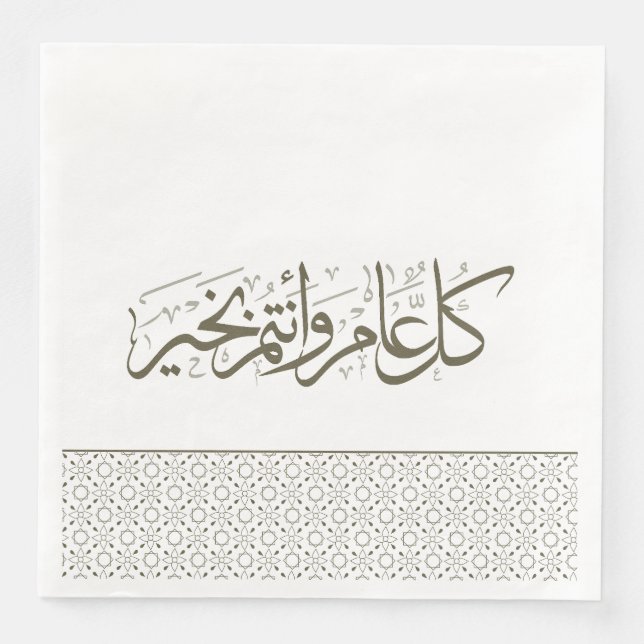 كُلُّ عَام وَأنتُم بخَير